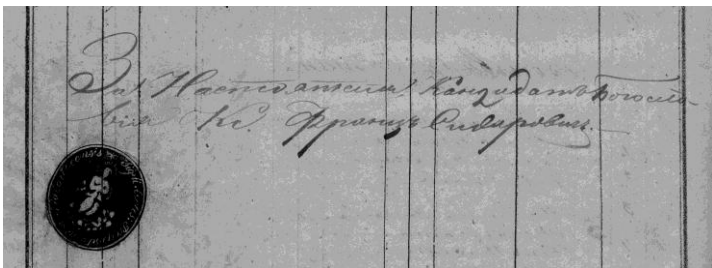 За Настоятеля Кандидатъ Богосло-
вія Кс. Францъ Сидаровичъ.